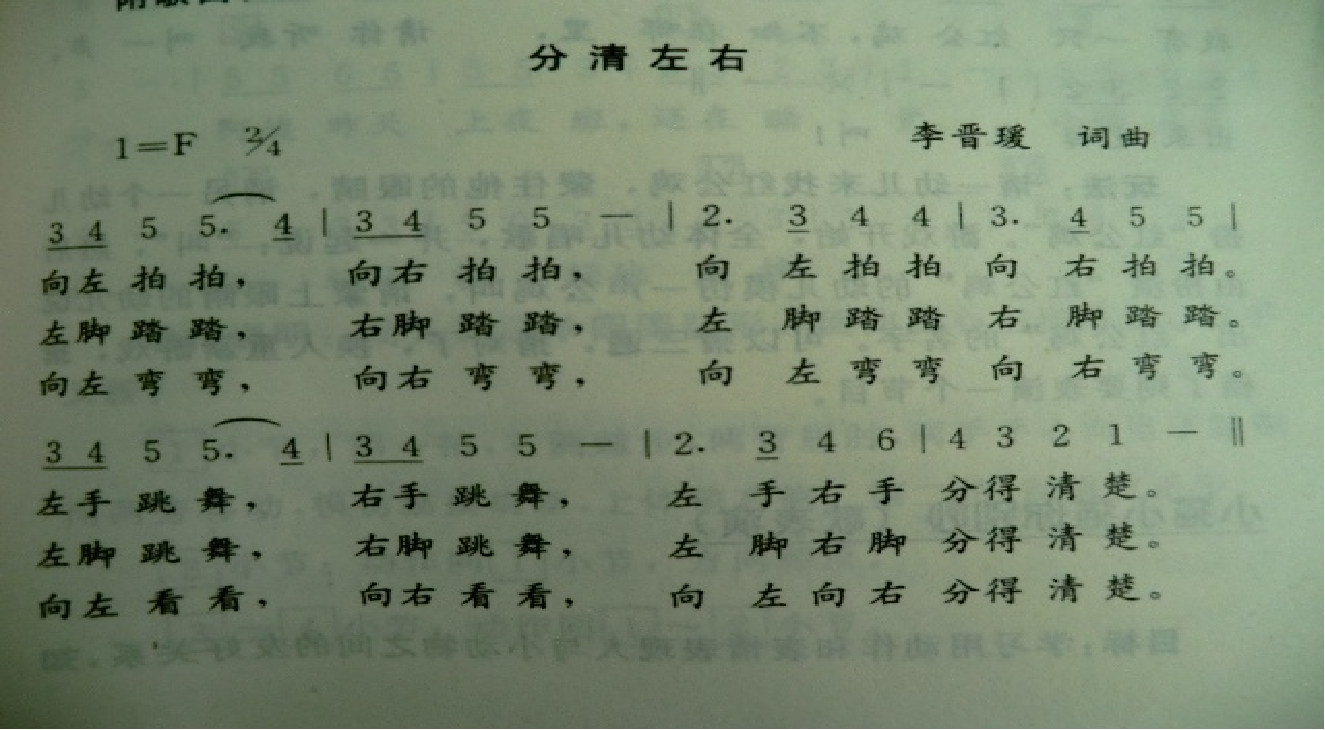 分清左右
1=F 2/4 李晋瑗 词曲
3 4 5 5. 4 | 3 4 5 5 — | 2. 3 4 4 | 3. 4 5 5 |
向左拍拍， 向右拍拍， 向左拍拍向右拍拍。
左脚踏踏， 右脚踏踏， 左脚踏踏右脚踏踏。
向左弯弯， 向右弯弯， 向左弯弯向右弯弯。
3 4 5 5. 4 | 3 4 5 5 — | 2. 3 4 6 | 4 3 2 1 — ‖
左手跳舞， 右手跳舞， 左手右手分得清楚。
左脚跳舞， 右脚跳舞， 左脚右脚分得清楚。
向左看看， 向右看看， 向左向右分得清楚。